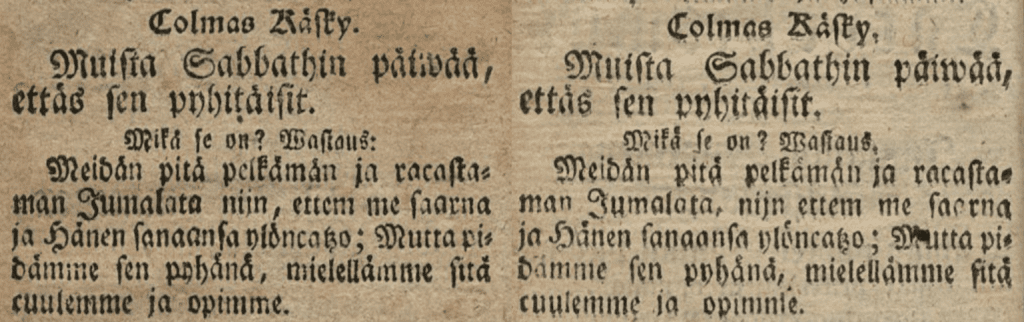 Colmas Käsky.
Muista Sabbathin päiwää,
ettäs sen pyhitäisit.
Mikä se on? Wastaus:
Meidän pitä pelkämän ja racasta-
man Jumalata nijn, ettem me saarna
ja Hänen sanaansa ylöncatzo; Mutta pi-
dämme sen pyhänä, mielellämme sitä
cuulemme ja opimme.
Colmas Käsky.
Muista Sabbathin päiwää,
ettäs sen pyhitäisit.
Mikä se on? Wastaus.
Meidän pitä pelkämän ja racasta-
man Jumalata, nijn ettem me saarna
ja Hänen sanaansa ylöncatzo; Mutta pi-
dämme sen pyhänä, mielellämme sitä
cuulemme ja opimme.